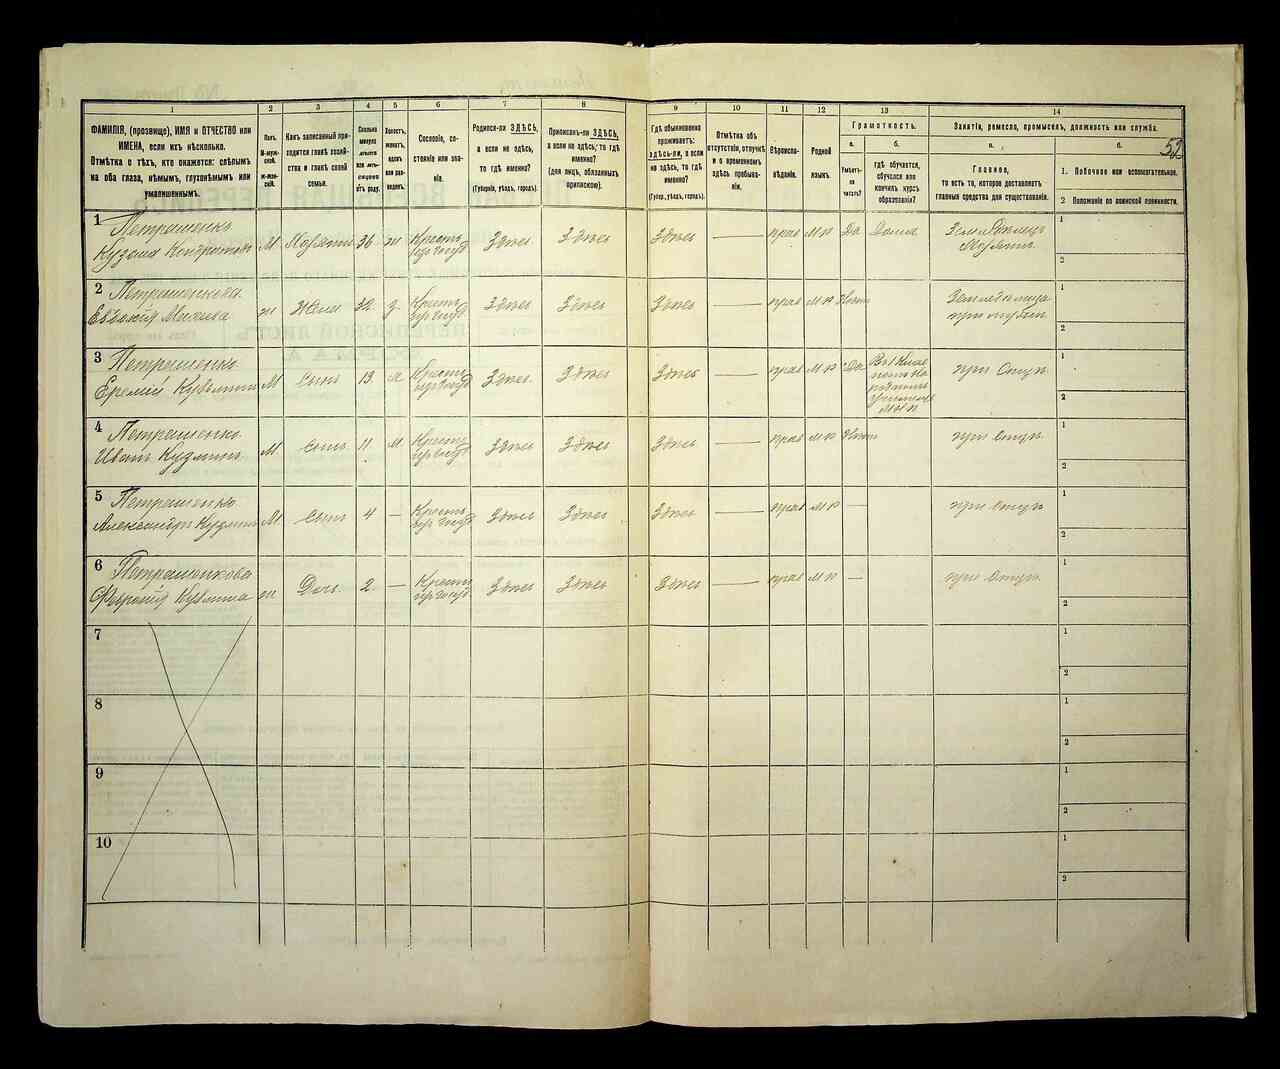 1
2
3
4
5
6
7
8
9
10
11
12
13
14
ФАМИЛІЯ, (прозвище), ИМЯ и ОТЧЕСТВО или
ИМЕНА, если ихъ нѣсколько.
Отмѣтка о тѣхъ, кто окажется: слѣпымъ
на оба глаза, нѣмымъ, глухонѣмымъ или
умалишеннымъ.
Полъ.
М-муж-
ской.
ж-жен-
скій.
Какъ записанный при-
ходится главѣ хозяй-
ства и главѣ своей
семьи.
Сколько
минуло
лѣтъ
или мѣ-
сяцевъ
отъ роду.
Холостъ,
женатъ,
вдовъ
или раз-
веденъ.
Сословіе, со-
стояніе или зва-
ніе.
Родился-ли ЗДѢСЬ,
а если не здѣсь,
то гдѣ именно?
(Губернія, уѣздъ, городъ).
Приписанъ-ли ЗДѢСЬ,
а если не здѣсь, то гдѣ
именно?
(для лицъ, обязанныхъ
припискою).
Гдѣ обыкновенно
проживаетъ:
здѣсь-ли, а если
не здѣсь, то гдѣ
именно?
(Губер., уѣздъ, городъ).
Отмѣтка объ
отсутствіи, отлучкѣ
и о временномъ
здѣсь пребыва-
ніи.
Вѣроиспо-
вѣданіе.
Родной
языкъ.
Грамотность.
а.
б.
Умѣетъ-
ли
читать?
гдѣ обучается,
обучался или
кончилъ курсъ
образованія?
Занятіе, ремесло, промыселъ, должность или служба.
а.
б.
52
Главное,
то есть то, которое доставляетъ
главныя средства для существованія.
1. Побочное или вспомогательное.
2 Положеніе по воинской повинности.
1
Петрашенко
Кузьма Кондратьевъ
М
Хозяинъ
36
ж
Крестьян
Здѣсь
Здѣсь
Здѣсь
—
прав
Мл
Да
Дома
Земледѣлецъ
Хозяинъ
1
2
2
Петрашенкова
Евдокія
ж
Жена
32
З.
Крестьян
Здѣсь
Здѣсь
Здѣсь
—
прав
Мл
Нѣтъ
при мужѣ
1
2
3
Петрашенко
Еремѣй Кузьминъ
М
Сынъ
13
Крестьян
Здѣсь
Здѣсь
Здѣсь
—
прав
Мл
Да
народномъ
училищѣ
при Отцѣ
1
2
4
Петрашенко
Иванъ Кузминъ
М.
Сынъ
11
Крестьян
Здѣсь
Здѣсь
Здѣсь
—
прав
Мл
Нѣтъ
при Отцѣ
1
2
5
Петрашенко
Александръ Кузминъ
М
Сынъ
4
—
Крестьян
Здѣсь
Здѣсь
Здѣсь
—
прав
Мл
—
при Отцѣ
1
2
6
Петрашенкова
Кузмина
ж
Дочь
2
—
Крестьян
Здѣсь
Здѣсь
Здѣсь
—
прав
Мл
—
при Отцѣ
1
2
7
1
2
8
1
2
9
1
2
10
1
2